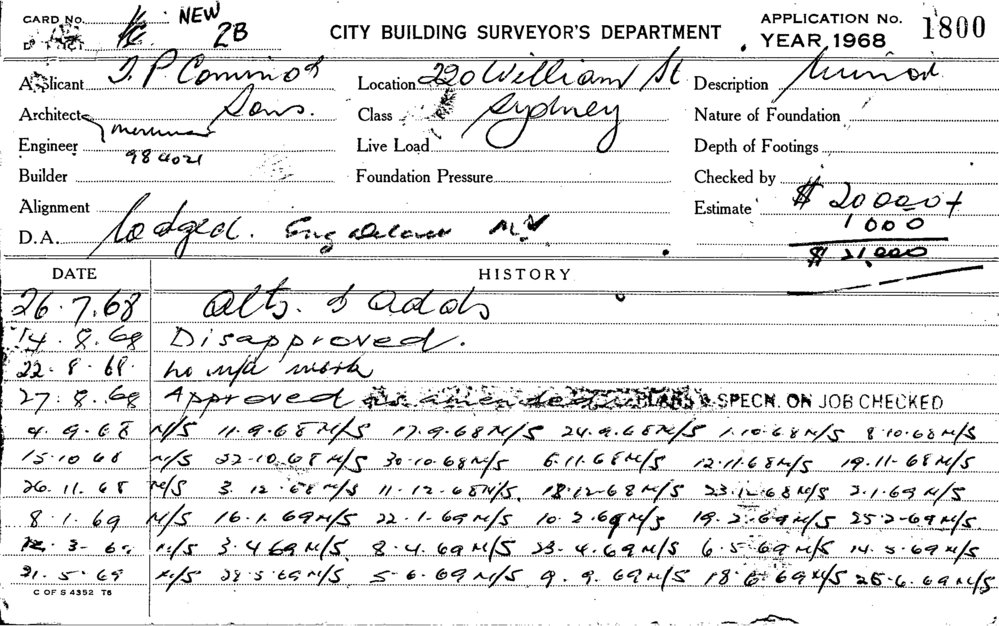 CARD No. NEW
DISTRICT 2B
CITY BUILDING SURVEYOR'S DEPARTMENT
APPLICATION No. 1800
YEAR, 1968
Applicant J. P Cominos Location 220 William St Description
Architect Sons. Class Sydney Nature of Foundation
Engineer Live Load Depth of Footings
984021
Builder Foundation Pressure Checked by
Alignment Estimate $ 20000 +
1000
D.A. Lodged. $ 21,000
DATE HISTORY
26.7.68 Alts. & adds
14.8.68 Disapproved.
22.8.68. work
27.8.68 Approved as amended PLANS & SPECN. ON JOB CHECKED
4.9.68 N/S 11.9.68 N/S 17.9.68 N/S 24.9.68 N/S 1.10.68 N/S 8.10.68 N/S
15.10.68 N/S 22.10.68 N/S 30.10.68 N/S 6.11.68 N/S 12.11.68 N/S 19.11.68 N/S
26.11.68 N/S 3.12.68 N/S 11.12.68 N/S. 18.12.68 N/S 23.12.68 N/S 2.1.69 N/S
8.1.69 N/S 16.1.69 N/S 22.1.69 N/S 10.2.69 N/S 19.2.69 N/S 25.2.69 N/S
12.3.69 N/S 3.4.69 N/S 8.4.69 N/S 23.4.69 N/S 6.5.69 N/S 14.5.69 N/S
21.5.69 N/S 28.5.69 N/S 5.6.69 N/S 9.9.69 N/S 18.6.69 N/S 25.6.69 N/S
C OF S 4352 T6